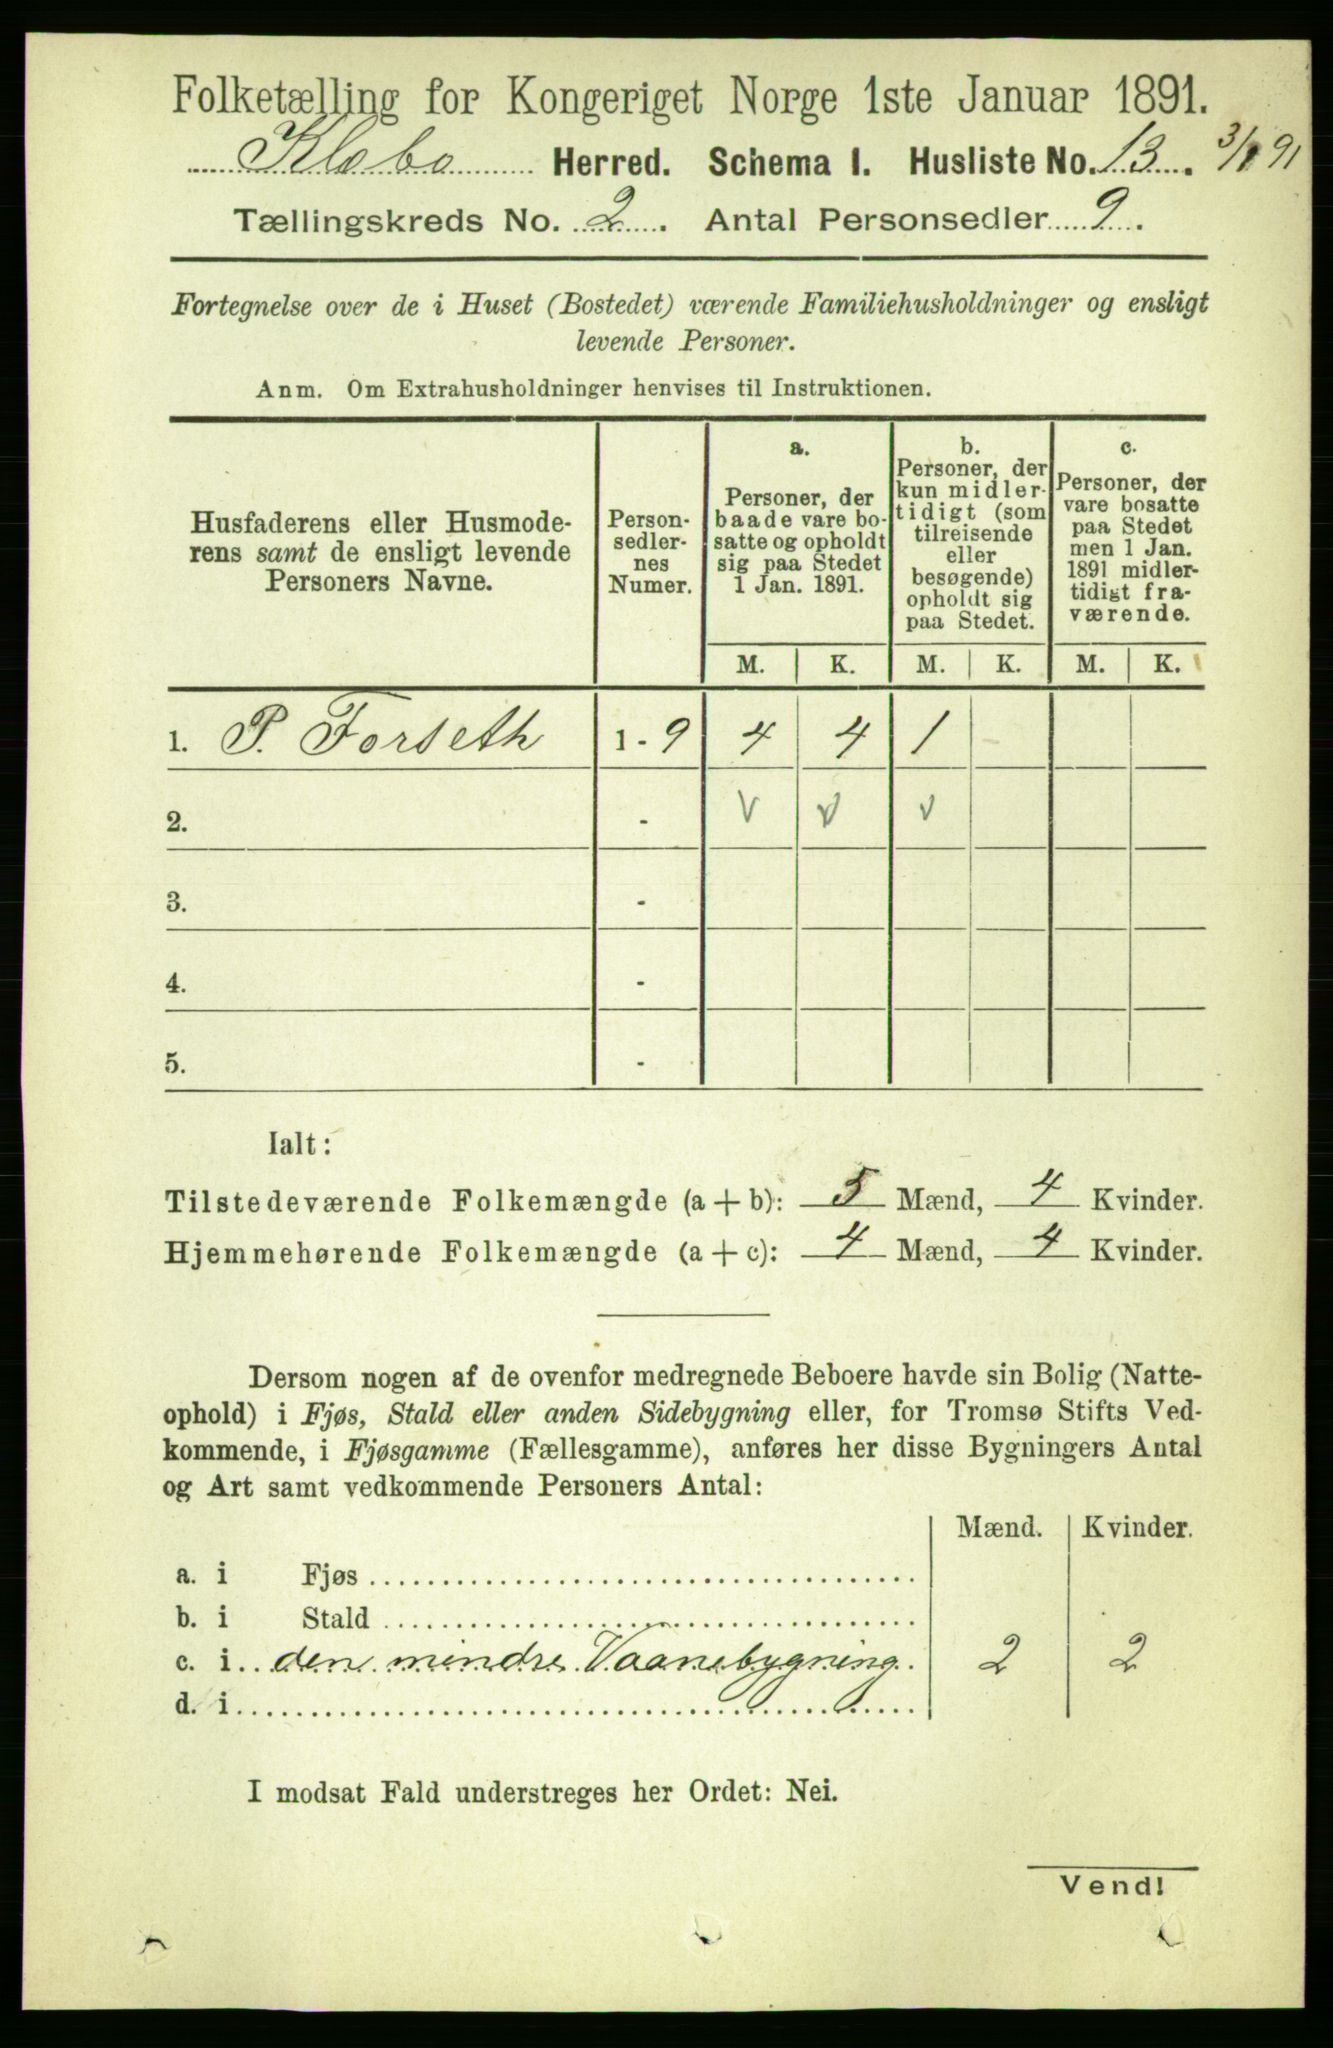 Folketælling for Kongeriget Norge 1ste Januar 1891.
Klæbo Herred. Schema I. Husliste No. 13. 3/1 91
Tællingskreds No. 2. Antal Personsedler 9.
Fortegnelse over de i Huset (Bostedet) værende Familiehusholdninger og ensligt
levende Personer.
Anm. Om Extrahusholdninger henvises til Instruktionen.
Husfaderens eller Husmode-
rens samt de ensligt levende
Personers Navne.
Person-
sedler-
nes
Numer.
a.
Personer, der
baade vare bo-
satte og opholdt
sig paa Stedet
1 Jan. 1891.
b.
Personer, der
kun midler-
tidigt (som
tilreisende
eller
besøgende)
opholdt sig
paa Stedet.
c.
Personer, der
vare bosatte
paa Stedet
men 1 Jan.
1891 midler-
tidigt fra-
værende.
M. K. M. K. M. K.
1. P. Forseth 1 - 9 4 4 1
2. - V V V
3. -
4. -
5. -
Ialt:
Tilstedeværende Folkemængde (a + b): 5 Mænd, 4 Kvinder.
Hjemmehørende Folkemængde (a + c): 4 Mænd, 4 Kvinder.
Dersom nogen af de ovenfor medregnede Beboere havde sin Bolig (Natte-
ophold) i Fjøs, Stald eller anden Sidebygning eller, for Tromsø Stifts Ved-
kommende, i Fjøsgamme (Fællesgamme), anføres her disse Bygningers Antal
og Art samt vedkommende Personers Antal:
Mænd. Kvinder.
a. i Fjøs
b. i Stald
c. i den mindre Vaanebygning 2 2
d. i
I modsat Fald understreges her Ordet: Nei.
Vend!